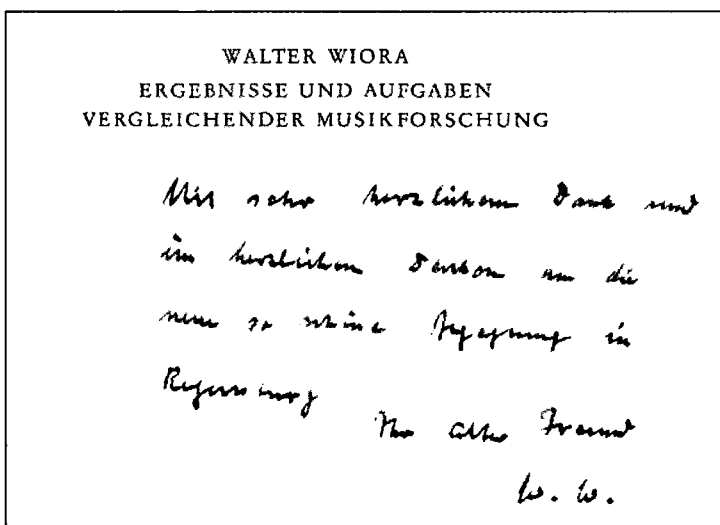 WALTER WIORA
ERGEBNISSE UND AUFGABEN
VERGLEICHENDER MUSIKFORSCHUNG
Mit sehr herzlichem Dank und
im herzlichen an die
neue so schöne Begegnung in
Regensburg
Ihr alter Freund
W. W.